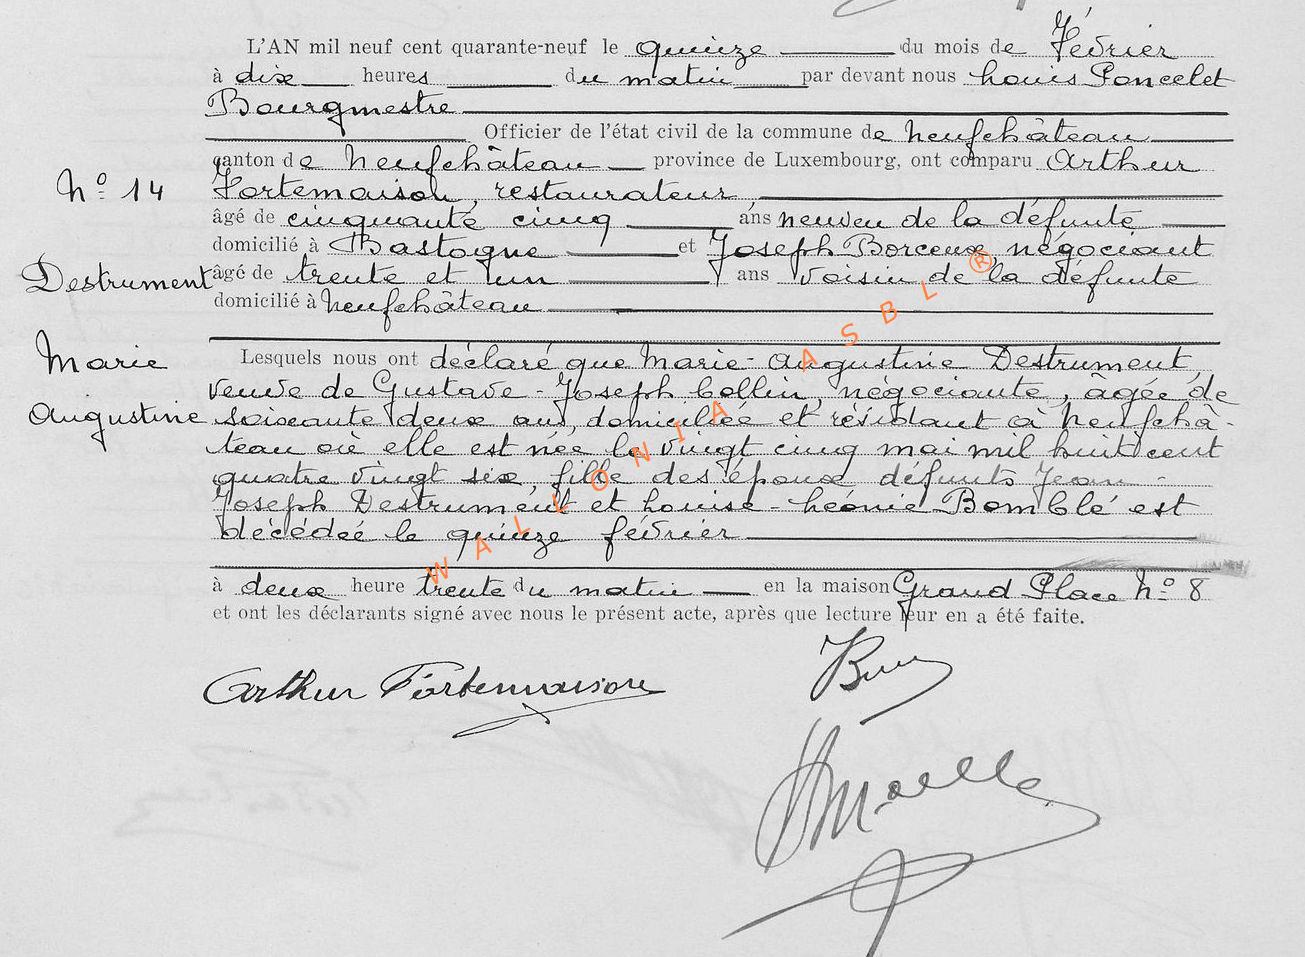 L'AN mil neuf cent quarante-neuf le quinze du mois de Février
à dix heures du matin par devant nous Louis Poncelet
Bourgmestre
Officier de l'état civil de la commune de Neufchâteau
canton de Neufchâteau province de Luxembourg, ont comparu Arthur
N° 14 Fortemaison, restaurateur
âgé de cinquante cinq ans neuveu de la défunte
domicilié à Bastogne et Joseph Borceux, négociant
Destrument âgé de trente et un ans voisin de la défunte
domicilié à Neufchâteau
Marie Lesquels nous ont déclaré que Marie-Augustine Destrument,
veuve de Gustave-Joseph Collin, négociante, âgée de
Augustine soixante deux ans, domiciliée et résidant à Neufchâ-
teau où elle est née le vingt cinq mai mil huit cent
quatre vingt six, fille des époux défunts Jean-
Joseph Destrument et Louise-Léonie Bomblé est
décédée le quinze février
à deux heure trente du matin en la maison Grand Place N° 8
et ont les déclarants signé avec nous le présent acte, après que lecture leur en a été faite.
Arthur Fortemaison
WALLONIA ASBL ®